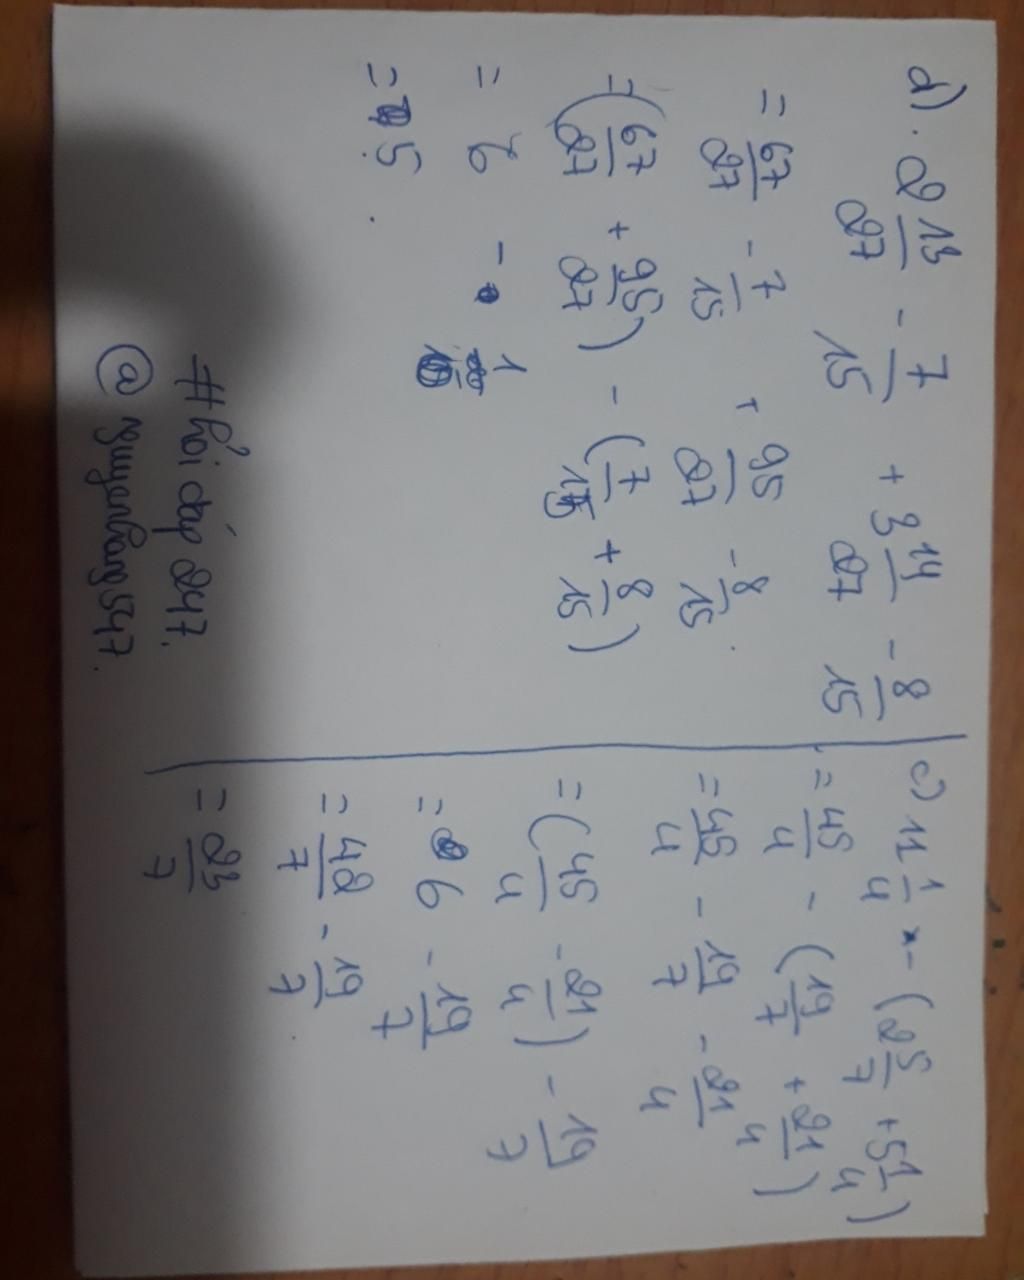 d). 2 13/27 - 7/15 + 3 14/27 - 8/15
= 67/27 - 7/15 + 95/27 - 8/15.
= (67/27 + 95/27) - (7/15 + 8/15)
= 6 - 1
= 5.
#hỏi đáp 247.
c) 11 1/4 - (2 5/7 + 5 1/4)
= 45/4 - (19/7 + 21/4)
= 45/4 - 19/7 - 21/4
= (45/4 - 21/4) - 19/7
= 6 - 19/7
= 42/7 - 19/7
= 23/7